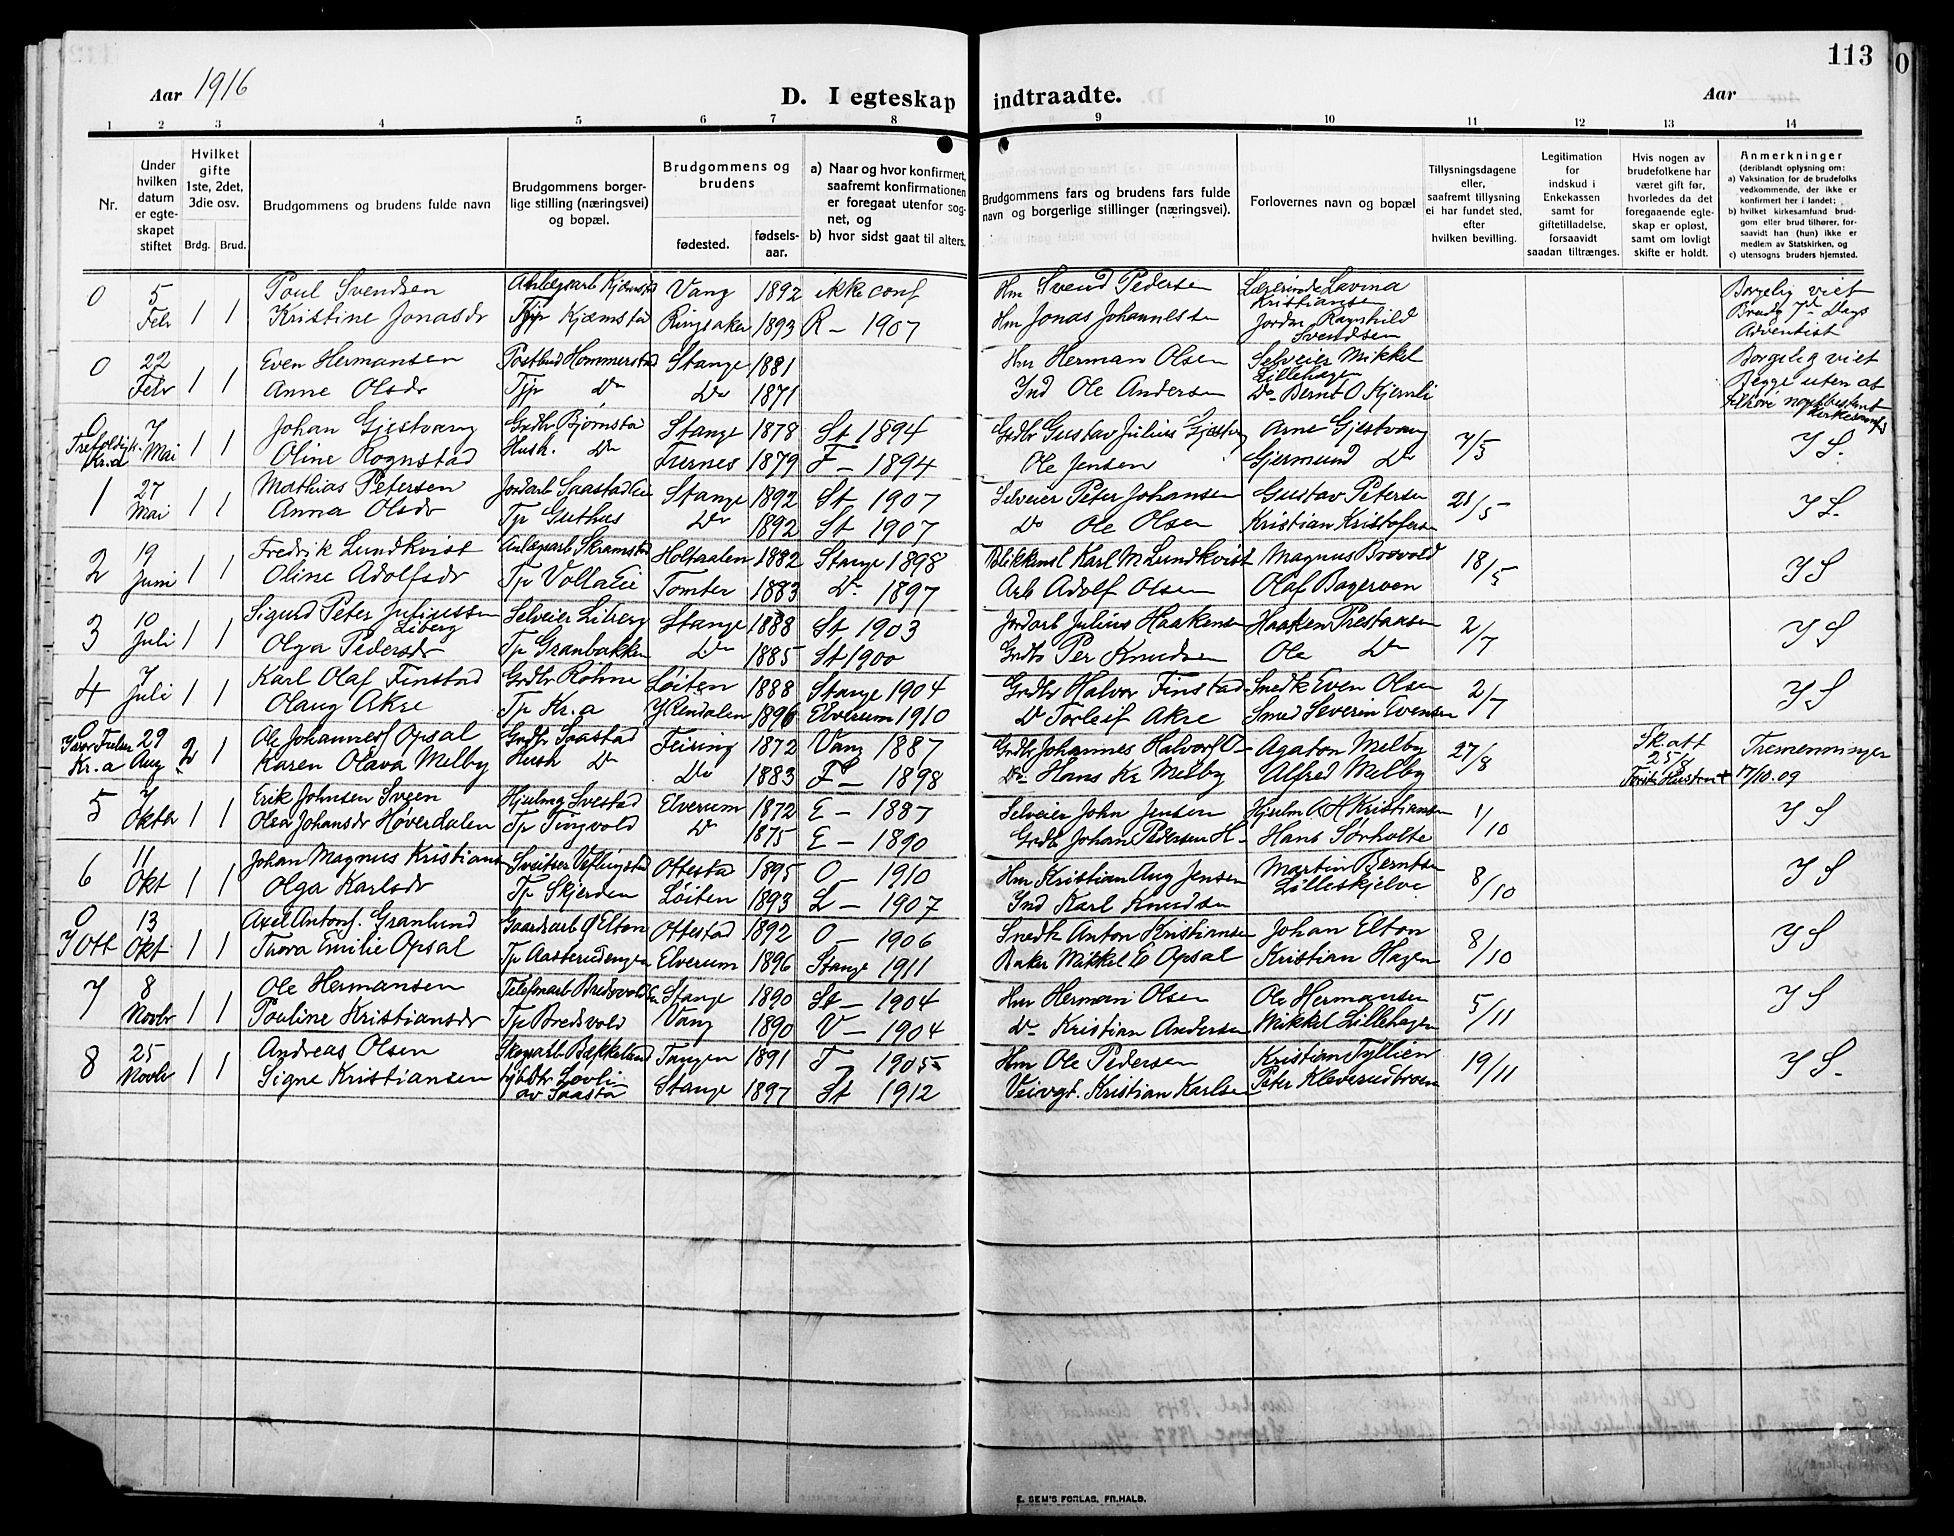 113
0
Aar 1916
D. I egteskap indtraadte.
Aar
1 2 3 4 5 6 7 8 9 10 11 12 13 14
Nr.
Under hvilken datum er egteskapet stiftet
Hvilket gifte 1ste, 2det, 3die osv.
Brdg. Brud.
Brudgommens og brudens fulde navn
Brudgommens borgerlige stilling (næringsvei) og bopæl.
Brudgommens og brudens
fødested.
fødselsaar.
a) Naar og hvor konfirmert, saafremt konfirmationen er foregaat utenfor sognet, og
b) hvor sidst gaat til alters.
Brudgommens fars og brudens fars fulde navn og borgerlige stillinger (næringsvei).
Forlovernes navn og bopæl
Tillysningsdagene eller, saafremt tillysning ei har fundet sted, efter hvilken bevilling.
Legitimation for indskud i Enkekassen samt for giftetilladelse, forsaavidt saadan tiltrænges.
Hvis nogen av brudefolkene har været gift før, hvorledes da det foregaaende egteskap er opløst, samt om lovligt skifte er holdt.
Anmerkninger
(deriblandt oplysning om:
a) Vaksination for de brudefolks vedkommende, der ikke er konfirmert her i landet;
b) hvilket kirkesamfund brudgom eller brud tilhører, forsaavidt han (hun) ikke er medlem av Statskirken, og
c) utensogns bruders hjemsted.
0 5 Febr 1 1 Poul Svendsen Anlægsarb Kjæmstad Vang 1892 ikke conf Hm Svend Pedersen Lærerinde Lavina Kristiansen Borgelig viet
Kristine Jonasdr Tjp Kjæmstad Ringsaker 1893 R – 1907 Hm Jonas Johannessen Jordm Ragnhild Svendsen Brud 7d Dags Adventist
0 22 Febr 1 1 Even Hermansen Postbud Hommerstad Stange 1881 Hm Herman Olsen Selveier Mikkel Lillehagen Borgelig viet
Anne Olsdr Tjp Do Do 1871 Ind Ole Andersen Do Bernt O Kjernli Begge uten at tilhøre noget bestemt kirkesamfd
0 Trefoldigh. Kr.a 7 Mai 1 1 Johan Gjestvang Grdbr Bjørnstad Stange 1878 St 1894 Grdbr Gustav Julius Gjestvang Arne Gjestvang 7/5 I S.
Oline Rognstad Hush. Do Furnes 1879 F – 1894 Ole Jensen Gjermund Do
1 27 Mai 1 1 Mathias Petersen Jordarb Saastad Eie Stange 1892 St 1907 Selveier Peter Johansen Gustav Petersen 21/5 I S.
Anna Olsdr Tp Guthus Do 1892 St 1907 Do Ole Olsen Kristian Kristofersen
2 19 Juni 1 1 Fredrik Lundkvist Anlægsarb Skramstad Holtaalen 1882 Stange 1898 Blikkensl Karl M Lundkvist Magnus Brovold 18/5 I S
Oline Adolfsdr Tp Volla Eie Tomter 1883 Do 1897 Arb Adolf Olsen Olaf Bagerven
3 10 Juli 1 1 Sigurd Peter Juliussen Liberg Selveier Liberg Stange 1888 St 1903 Jordarb Julius Haakensen Haaken Prestaasen 2/7 I S
Olga Pedersdr Tp Granbakken Do 1885 St 1900 Grdbr Per Knudsen Ole Do
4 7 Juli 1 1 Karl Olaf Finstad Grdbr Rohne Løiten 1888 Stange 1904 Grdbr Halvor Finstad Snedk Even Olsen 2/7 I S
Olaug Akre Tp Kr.a Y Rendalen 1896 Elverum 1910 Do Torleif Akre Smed Severin Evensen
0 Kr.a 29 Aug 2 1 Ole Johannes. Opsal Grdbr Saastad Feiring 1872 Vang 1887 Grdbr Johannes Halvors O– Agaton Melby 27/8 Sk.att 25/8 Tremenninger
Karen Olava Melby Hush Do Do 1883 F – 1898 Do Hans Kr Melby Alfred Melby 17/10.09
5 7 Oktbr 1 1 Erik Johnsen Sveen Hjulmg Svestad Elverum 1872 E – 1887 Selveier John Jensen Hjulm A H Kristiansen 1/10 I S
Olea Johansdr Høverdalen Tp Tingvold Do 1875 E – 1890 Grdb Johan Pedersen H– Hans Sørholte
6 11 Okt 1 1 Johan Magnus Kristians Sveitser Vestlingstad Ottestad 1895 O – 1910 Hm Kristian Aug Jensen Martin Berntsen Lilleskjelve 8/10 I S
Olga Karlsdr Tp Skjerden Løiten 1893 L – 1907 Ind Karl Knudsen
0 I Ott 13 Okt 1 1 Axel Antons. Granlund Gaardsarb Elton Ottestad 1892 O – 1906 Snedk Anton Kristiansen Johan Elton 8/10 I S
Thora Emilie Opsal Tp Aasterudengen Elverum 1896 Stange 1911 Baker Mikkel E Opsal Kristian Hagen
7 8 Novbr 1 1 Ole Hermansen Telefonarb Bredsvold Stange 1890 St – 1904 Hm Herman Olsen Ole Hermansen 5/11 I S
Pouline Kristiansdr Tp Bredsvold Vang 1890 V – 1904 Do Kristian Andersen Mikkel Lillehagen
8 25 Novbr 1 1 Andreas Olsen Skogsarb Bækkelund Tangen 1891 T – 1905 Hm Ole Pedersen Kristian Tyllien 19/11 I S.
Signe Kristiansen Lovli av Saasta Stange 1897 St 1912 Veivgt. Kristian Karlsen Peter Kleverudbroen
E. SEM'S FORLAG, FR.HALD.